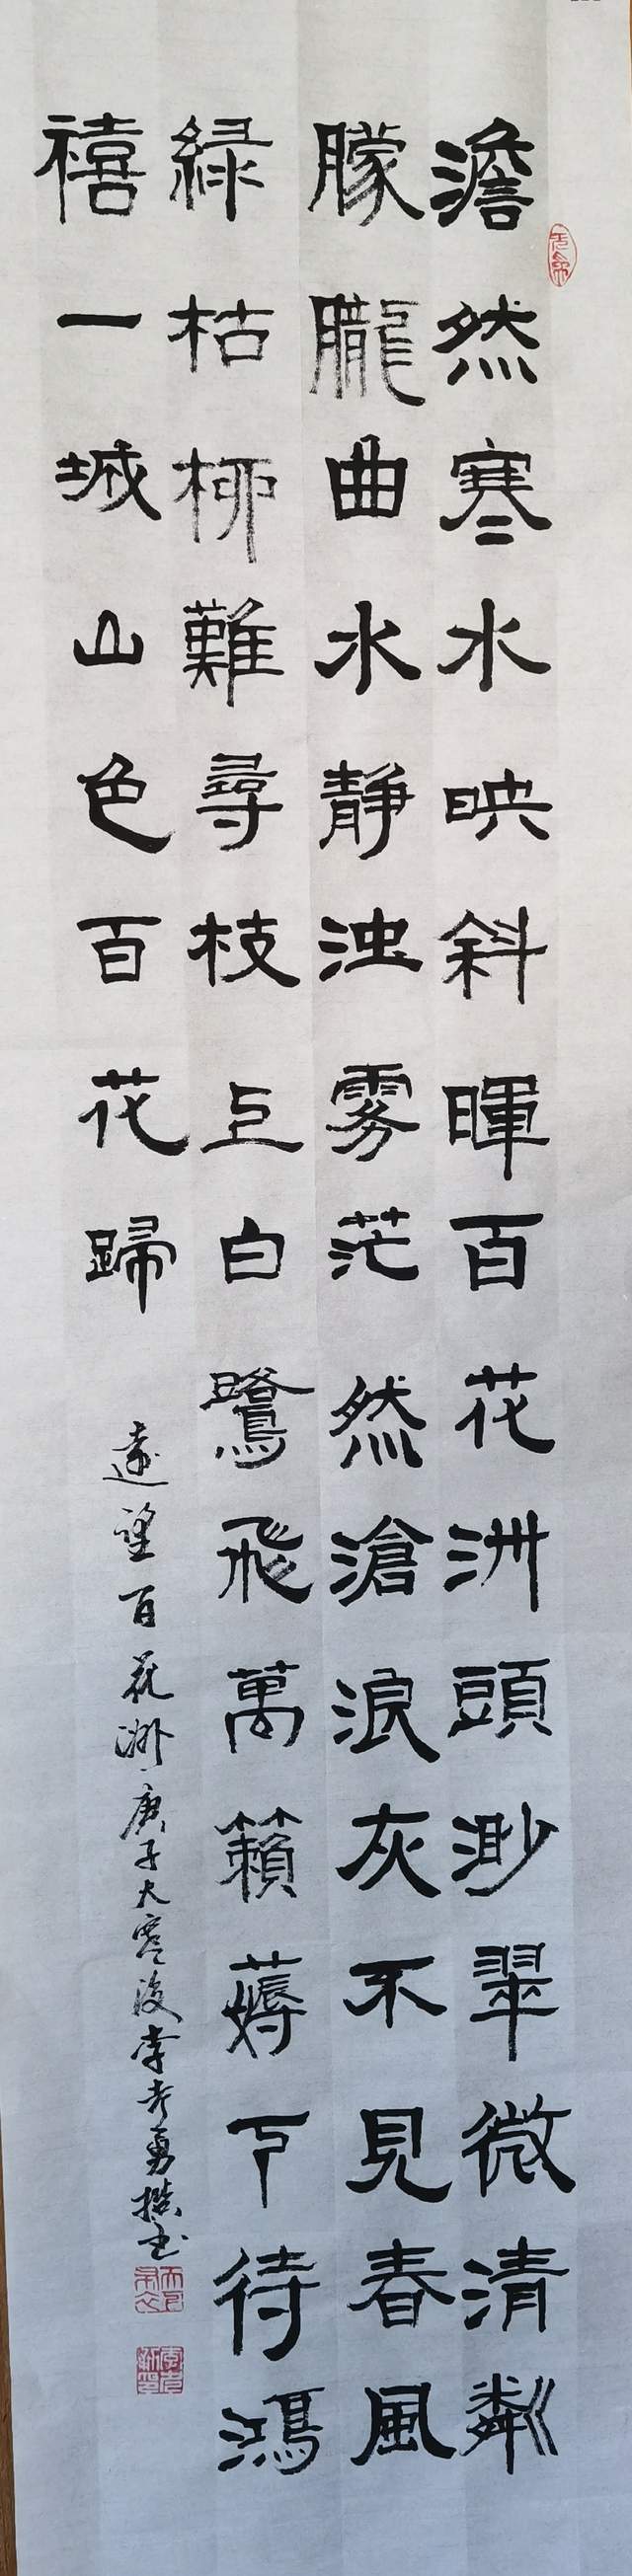 澹然寒水映斜暉百花洲頭渺翠微清粼
朦朧曲水靜浊雾茫然滄浪灰不見春風
緑枯柳難尋枝上白鷺飛萬籟薅下待鴻
禧一城山色百花歸
遠望百花洲庚子大寒後李考勇撰书